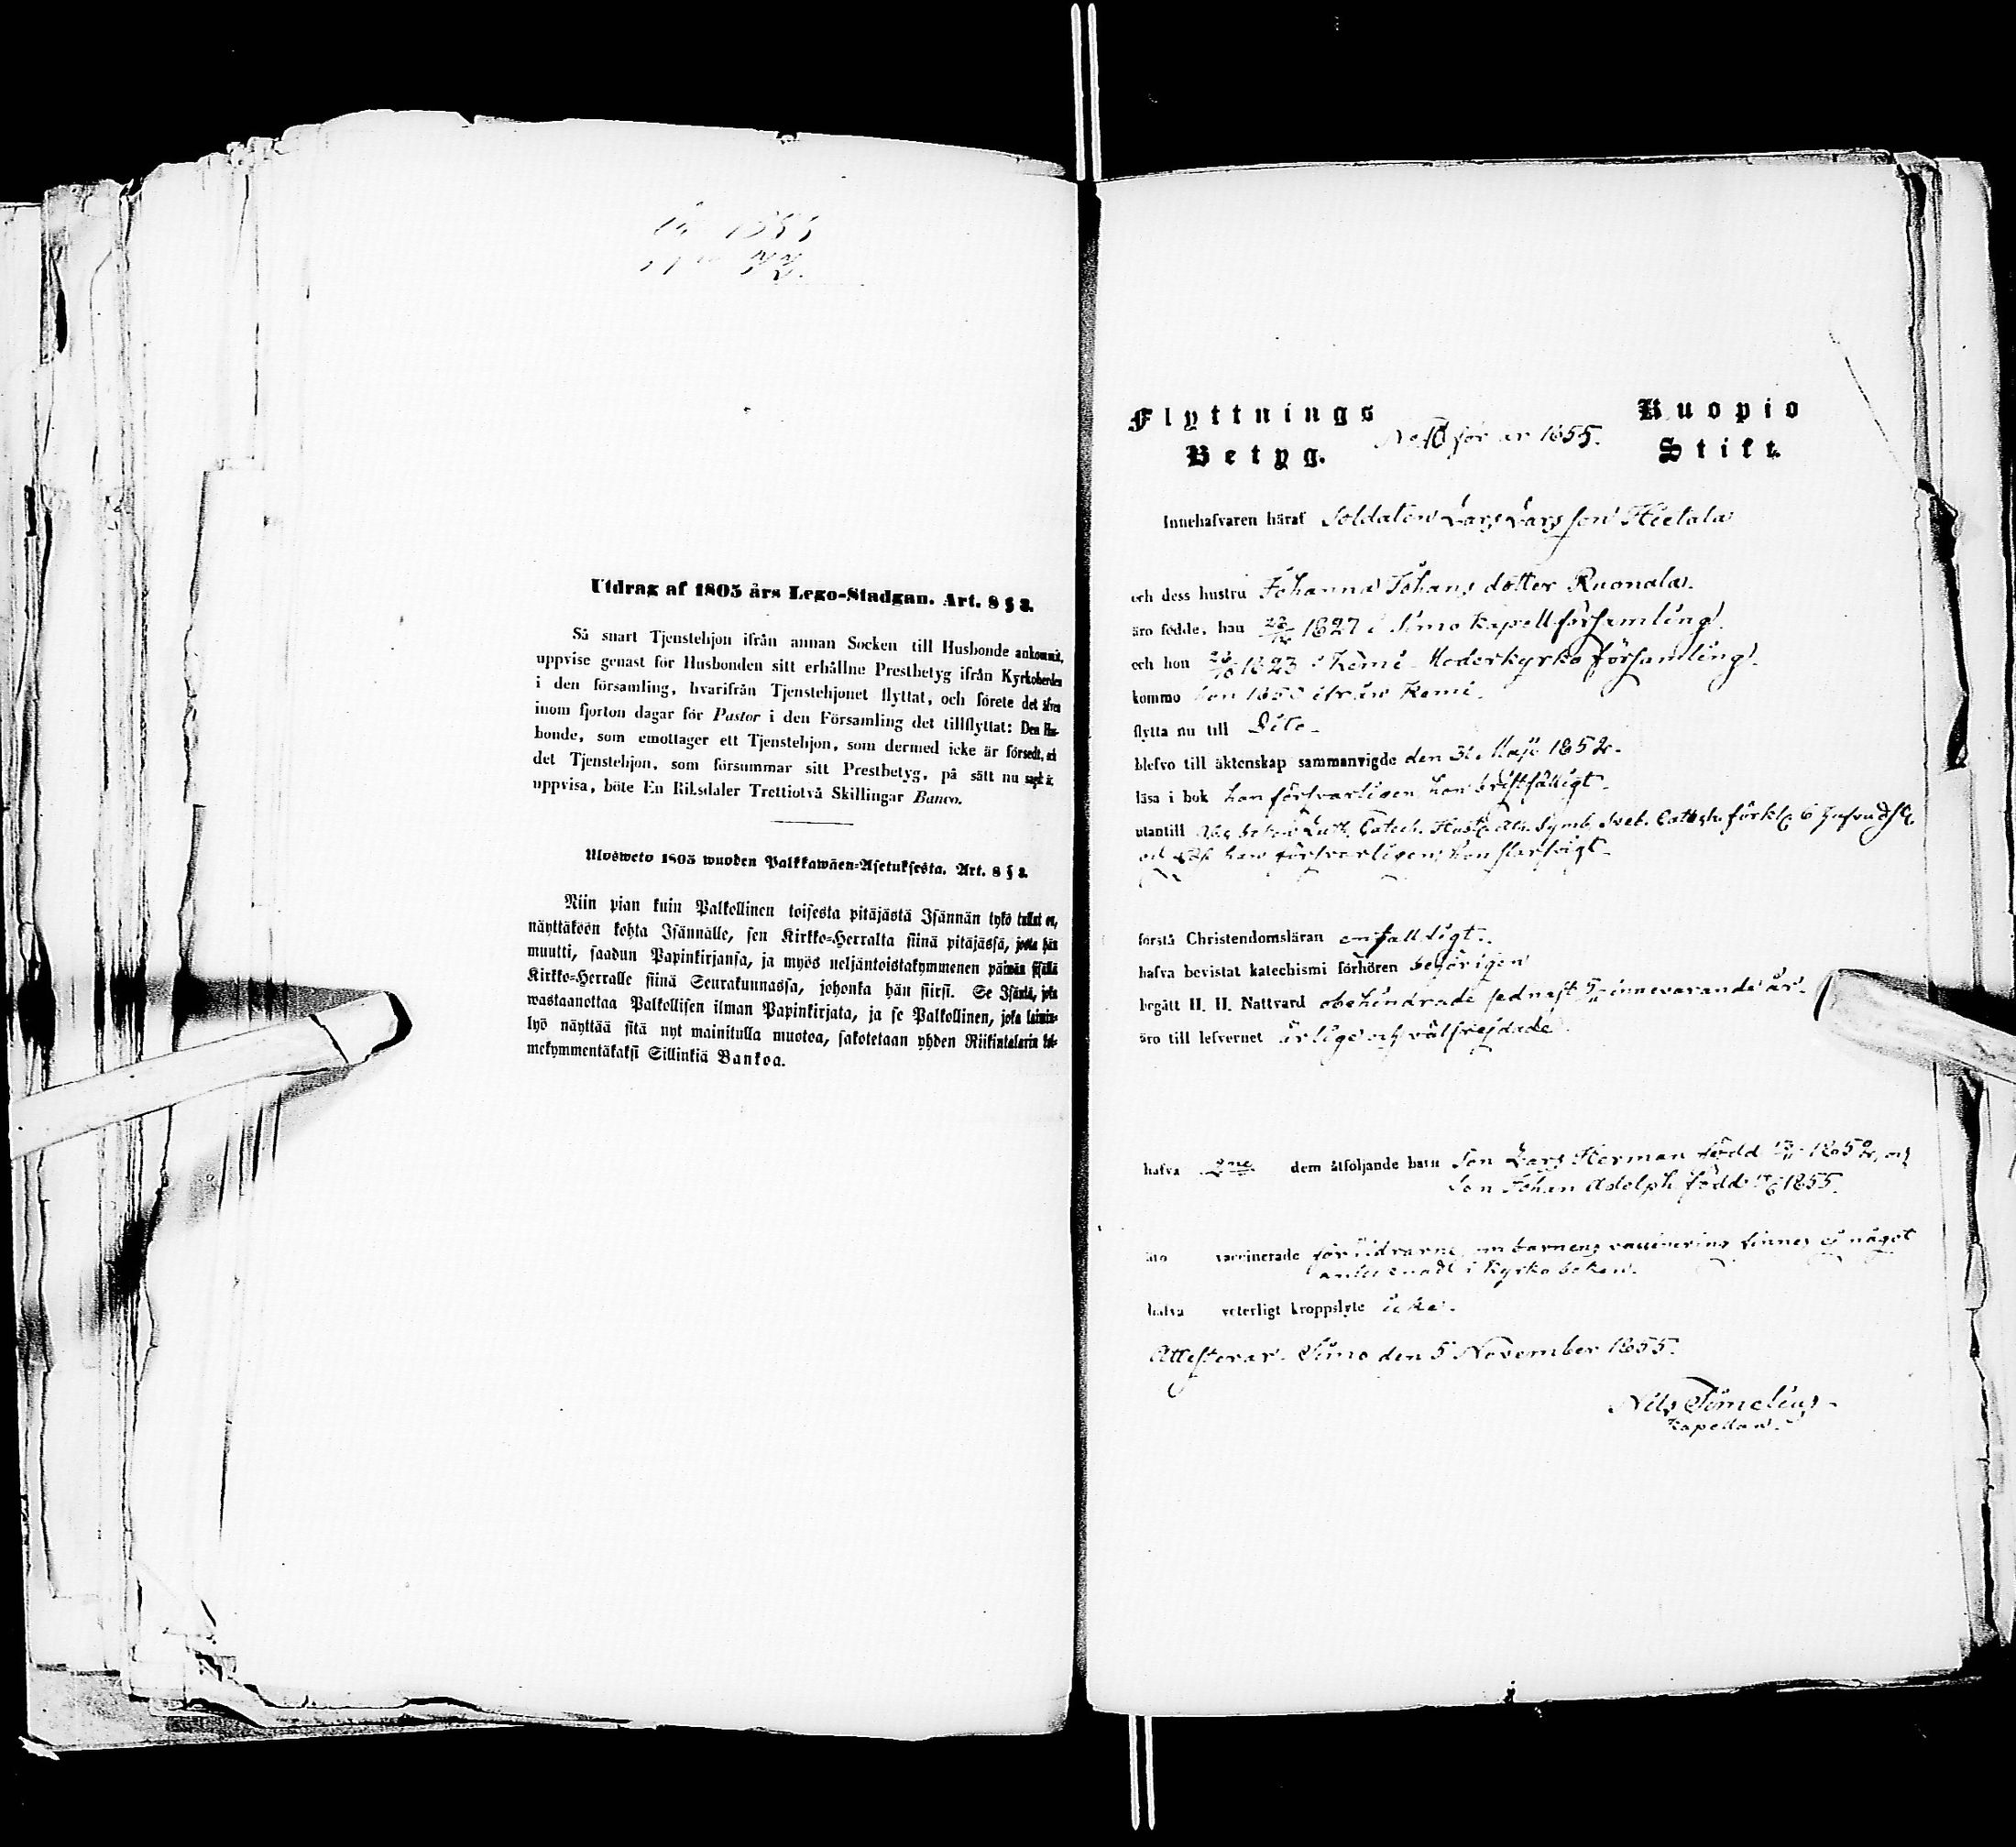 1855
Utdrag af 1805 års Lego-Stadgan. Art. 8 § 3.
Så snart Tjenstehjon ifrån annan Socken till Husbonde ankommit,
uppvise genast för Husbonden sitt erhållne Prestbetyg ifrån Kyrkoherden
i den församling, hvarifrån Tjenstehjonet flyttat, och förete det äfven
inom fjorton dagar för Pastor i den Församling det tillflyttat: Den Hus-
bonde, som emottager ett Tjenstehjon, som dermed icke är försedt, och
det Tjenstehjon, som försummar sitt Prestbetyg, på sätt nu sagt är,
uppvisa, böte En Riksdaler Trettiotvå Skillingar Banco.
Ulosweto 1805 wuoden Palkkawäen-Asetuksesta. Art. 8 § 3.
Niin pian kuin Palkollinen toisesta pitäjästä Isännän tykö tullut on,
näyttäköön kohta Isännälle, sen Kirkko-Herralta siinä pitäjässä, josta hän
muutti, saadun Papinkirjansa, ja myös neljäntoistakymmenen päiwän sisällä
Kirkko-Herralle siinä Seurakunnassa, johonka hän siirsi. Se Isäntä, joka
wastaanottaa Palkollisen ilman Papinkirjata, ja se Palkollinen, joka laimin-
lyö näyttää sitä nyt mainitulla muotoa, sakotetaan yhden Riikintalarin kol-
mekymmentäkaksi Sillinkiä Bankoa.
Flyttnings
Betyg.
No 10 för år 1855.
Kuopio
Stift.
Innehafvaren häraf Soldaten Lars Larsson Hietala
och dess hustru Johanna Johans dotter Ruonala.
äro födde, han 1827 i Simo Kapellförsamling.
och hon 1823 i Kemi Moderkyrko församling.
kommo hon 1850 ifrån Kemi.
flytta nu till Dito.
blefvo till äktenskap sammanvigde den 31 Maji 1852.
läsa i bok han försvarligen hon bristfälligt.
utantill Abc boken Luth. Catech. Hust. Ath. Symb. Sveb. Catech. förkl. 6 Hufvudst.
och han försvarligen hon slarfvigt.
förstå Christendomsläran enfalldigt.
hafva bevistat katechismi förhören behörigen
begått H. H. Nattvard obehindrade sednast innevarande år.
äro till lefvernet ärlige och välfrejdade.
hafva 2ne dem åtföljande barn Son Lars Herman född 1852, och
Son Johan Adolph född 1855.
äro vaccinerade föräldrarne, om barnens vaccinering finnes ej något
antecknadt i Kyrkoboken.
hafva veterligt kroppslyte icke.
Attesterar. Simo den 5 November 1855.
Nils Simelius
Kapellan.